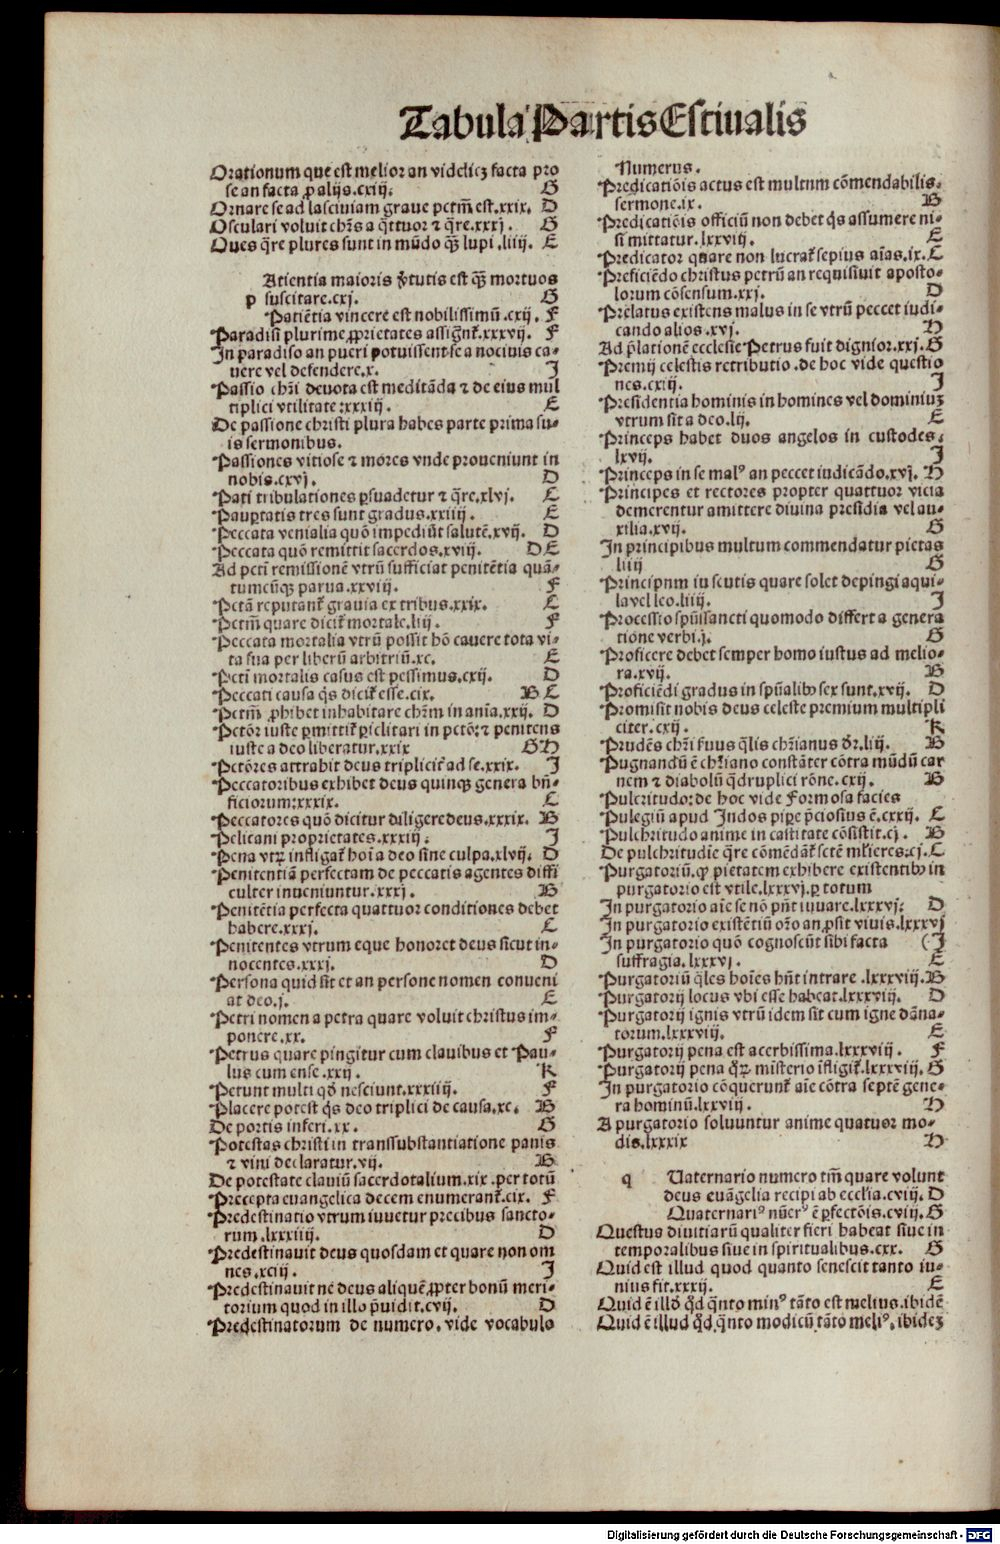 Tabula Partis Estiualis
Orationum que est melior an videlicz facta pro
se an facta ꝓ alijs.cxiij. G
Ornare se ad lasciuiam graue pctm̄ est.xxix. D
Osculari voluit chr̄s a q̄ttuor ⁊ q̄re.xxxj. G
Oues q̄re plures sunt in mūdo q̄ꝫ lupi .liiij. E
Atientia maioris v̄tutis est q̄ꝫ mortuos
p suscitare.cxj. G
Patiētia vincere est nobilissimū.cxij. F
Paradisi plurime ꝓprietates assignt̄.xxxvij. F
In paradiso an pueri potuissent se a nociuis ca-
uere vel defendere.x. J
Passio chr̄i deuota est meditāda ⁊ de eius mul
tiplici vtilitate:xxxiij. E
De passione christi plura habes parte prima su-
is sermonibus.
Passiones vitiose ⁊ mores vnde proueniunt in
nobis.cxvj. D
Pati tribulationes ꝑsuadetur ⁊ q̄re.xlvj. C
Pauꝑtatis tres sunt gradus.xxiiij. E
Peccata venialia quō impediūt salutē.xvij. D
Peccata quō remittit sacerdos.xviij. D E
Ad pcti remissionē vtrū sufficiat penitētia quā-
tumcūqꝫ parua.xxviij. F
Pctā reputant̄ grauia ex tribus.xxix. C
Pctm̄ quare dicit̄ mortale.liij. F
Peccata mortalia vtrū possit hō cauere tota vi-
ta sua per liberū arbitriū.xc. E
Pcti mortalis casus est pessimus.cxij. D
Peccati causa q̄s dicit̄ esse.cix. B C
Pctm̄ ꝓhibet inhabitare chr̄m in anīa.xxij. D
Pctōr iuste ꝑmittit̄ ꝑiclitari in pctō: ⁊ penitens
iuste a deo liberatur.xxix G H
Pctōres attrahit deus triplicit̄ ad se.xxix. J
Peccatoribus exhibet deus quinqꝫ genera bn̄-
ficiorum:xxxix. C
Peccatores quō dicitur diligere deus.xxxix. B
Pelicani proprietates.xxxiij. J
Pena vtꝝ infligat̄ hoīa deo sine culpa.xlvij. D
Penitentiā perfectam de peccatis agentes diffi
culter inueniuntur.xxxj. B
Penitētia perfecta quattuor conditiones debet
habere.xxxj. C
Penitentes vtrum eque honoret deus sicut in-
nocentes.xxxj. D
Persona quid sit et an persone nomen conueni
at deo.j. E
Petri nomen a petra quare voluit christus im-
ponere.xx. F
Petrus quare pingitur cum clauibus et Pau-
lus cum ense.xxij. K
Petunt multi qd̄ nesciunt.xxxiiij. F
Placere potest q̄s deo triplici de causa.xc. B
De portis inferi.xx. G
Potestas christi in transsubstantiatione panis
⁊ vini declaratur.vij. B
De potestate clauiū sacerdotalium.xix .per totū
Precepta euangelica decem enumerant̄.cix. F
Predestinatio vtrum iuuetur precibus sancto-
rum.lxxxiiij. D
Predestinauit deus quosdam et quare non om
nes.xciij. J
Predestinauit ne deus aliquē ꝓpter bonū meri-
torium quod in illo p̄uidit.cvij. D
Predestinatorum de numero. vide vocabulo
Numerus.
Predicatiōis actus est multum cōmendabilis.
sermone.ix. B
Predicatiōis officiū non debet q̄s assumere ni-
si mittatur.lxxviij. E
Predicator quare non lucrat̄ sepius aīas.ix. C
Preficiēdo christus petrū an requisiuit aposto-
lorum cōsensum.xxj. D
Prelatus existens malus in se vtrū peccet iudi-
cando alios.xvj. H
Ad p̄lationē ecclesie Petrus fuit dignior.xxj. G
Premij celestis retributio .de hoc vide questio
nes.cxiij. J
Presidentia hominis in homines vel dominiuꝫ
vtrum sit a deo.lij. E
Princeps habet duos angelos in custodes.
lxvij. J
Princeps in se malꝰ an peccet iudicādo.xvj. H
Principes et rectores propter quattuor vicia
demerentur amittere diuina presidia vel au-
xilia.xvij. G
In principibus multum commendatur pietas
liiij G
Principum in scutis quare solet depingi aqui-
la vel leo.liiij. J
Processio spūssancti quomodo differt a genera
tione verbi.j. G
Proficere debet semper homo iustus ad melio-
ra.xvij. B
Proficiēdi gradus in spūalibꝰ sex sunt.xvij. D
Promisit nobis deus celeste premium multipli
citer.cxij. K
Prudēs chr̄i ẜuus q̄lis chr̄ianus dr̄.lij. B
Pugnandū ē chr̄iano constāter cōtra mūdū car
nem ⁊ diabolū q̄druplici rōne.cxij. B
Pulcritudo: de hoc vide Formosa facies
Pulegiū apud Indos piꝑe p̄ciosius ē.cxxij. C
Pulchritudo anime in castitate cōsistit.cj. B
De pulchritudīe q̄re cōmēdāt̄ sctē ml̄ieres:cj. C
Purgatoriū.ꝙ pietatem exhibere existentibꝰ in
purgatorio est vtile.lxxxvj.ꝑ totum
In purgatorio aīe se nō pn̄t iuuare.lxxxvj: D
In purgatorio existētiū or̄o an ꝓsit viuis.lxxxvj
In purgatorio quō cognoscūt sibi facta (J
suffragia.lxxxvj. E
Purgatoriū q̄les hoīes hn̄t intrare .lxxxviij. B
Purgatorij locus vbi esse habeat.lxxxviij. D
Purgatorij ignis vtrū idem sit cum igne dāna-
torum.lxxxviij. E
Purgatorij pena est acerbissima.lxxxviij. F
Purgatorij pena q̄ꝝ mīsterio īfligit̄.lxxxviij. G
In purgatorio cōquerunt̄ aīe cōtra septē gene-
ra hominū.lxxviij. H
A purgatorio soluuntur anime quatuor mo-
dis.lxxxix H
q Uaternario numero tm̄ quare volunt
deus euāgelia recipi ab ecclīa.cviij. D
Quaternariꝰ nūerꝰ ē ꝑfectōis.cviij. G
Questus diuitiarū qualiter fieri habeat siue in
temporalibus siue in spiritualibus.cxx. G
Quid est illud quod quanto senescit tanto iu-
nius fit.xxxij. E
Quid ē illd̄ qd̄ q̄nto minꝰ tāto est melius.ibidē
Quid ē illud qd̄ q̄nto modicū tāto meliꝰ.ibideꝫ
Digitalisierung gefördert durch die Deutsche Forschungsgemeinschaft - DFG